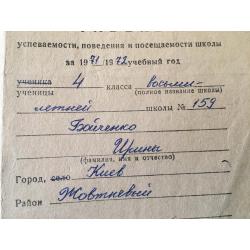 успеваемости, поведения и посещаемости школы
за 1971/1972 учебный год
ученика 4 класса восьми-
ученицы (полное название школы)
летней школы № 159
Бойченко
Ирины
(фамилия, имя и отчество)
Город, село Киев
Район Жовтневый